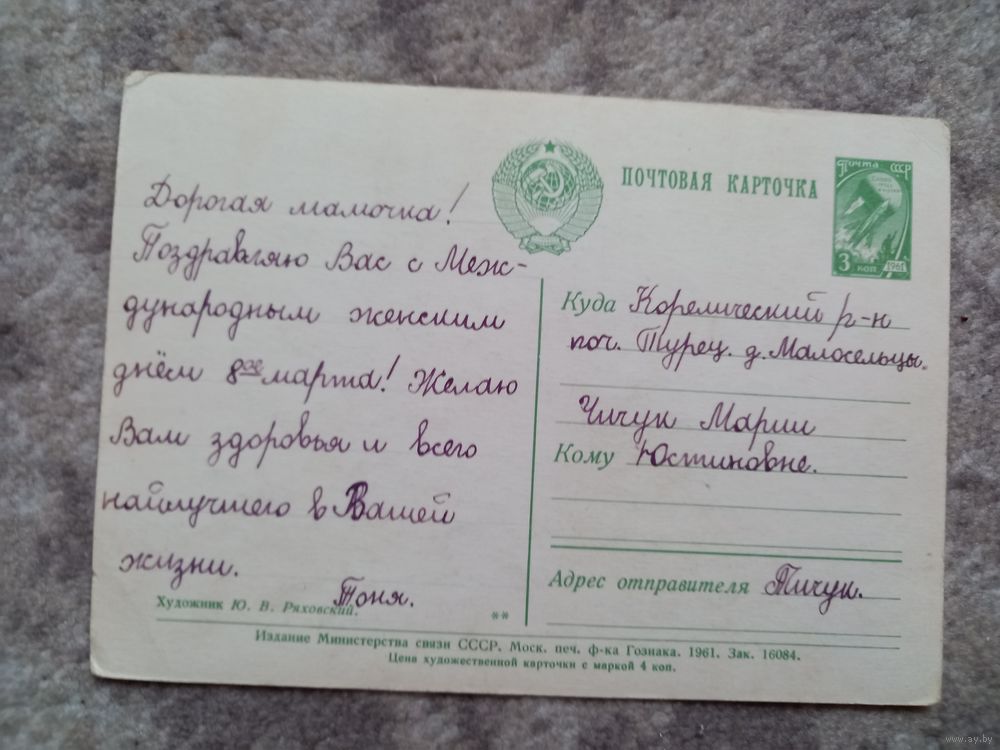 Дорогая мамочка!
Поздравляю Вас с Меж-
дународным женским
днём 8ое марта! Желаю
Вам здоровья и всего
найлучшего в Вашей
жизни.
Тоня.
Художник Ю. В. Ряховский.
**
ПОЧТОВАЯ КАРТОЧКА
Почта СССР
3 коп 1961
Куда Корелический р-н
поч. Турец. д. Малосельцы.
Чичук Марии
Кому Юстиновне.
Адрес отправителя
Издание Министерства связи СССР. Моск. печ. ф-ка Гознака. 1961. Зак. 16084.
Цена художественной карточки с маркой 4 коп.
www.ay.by